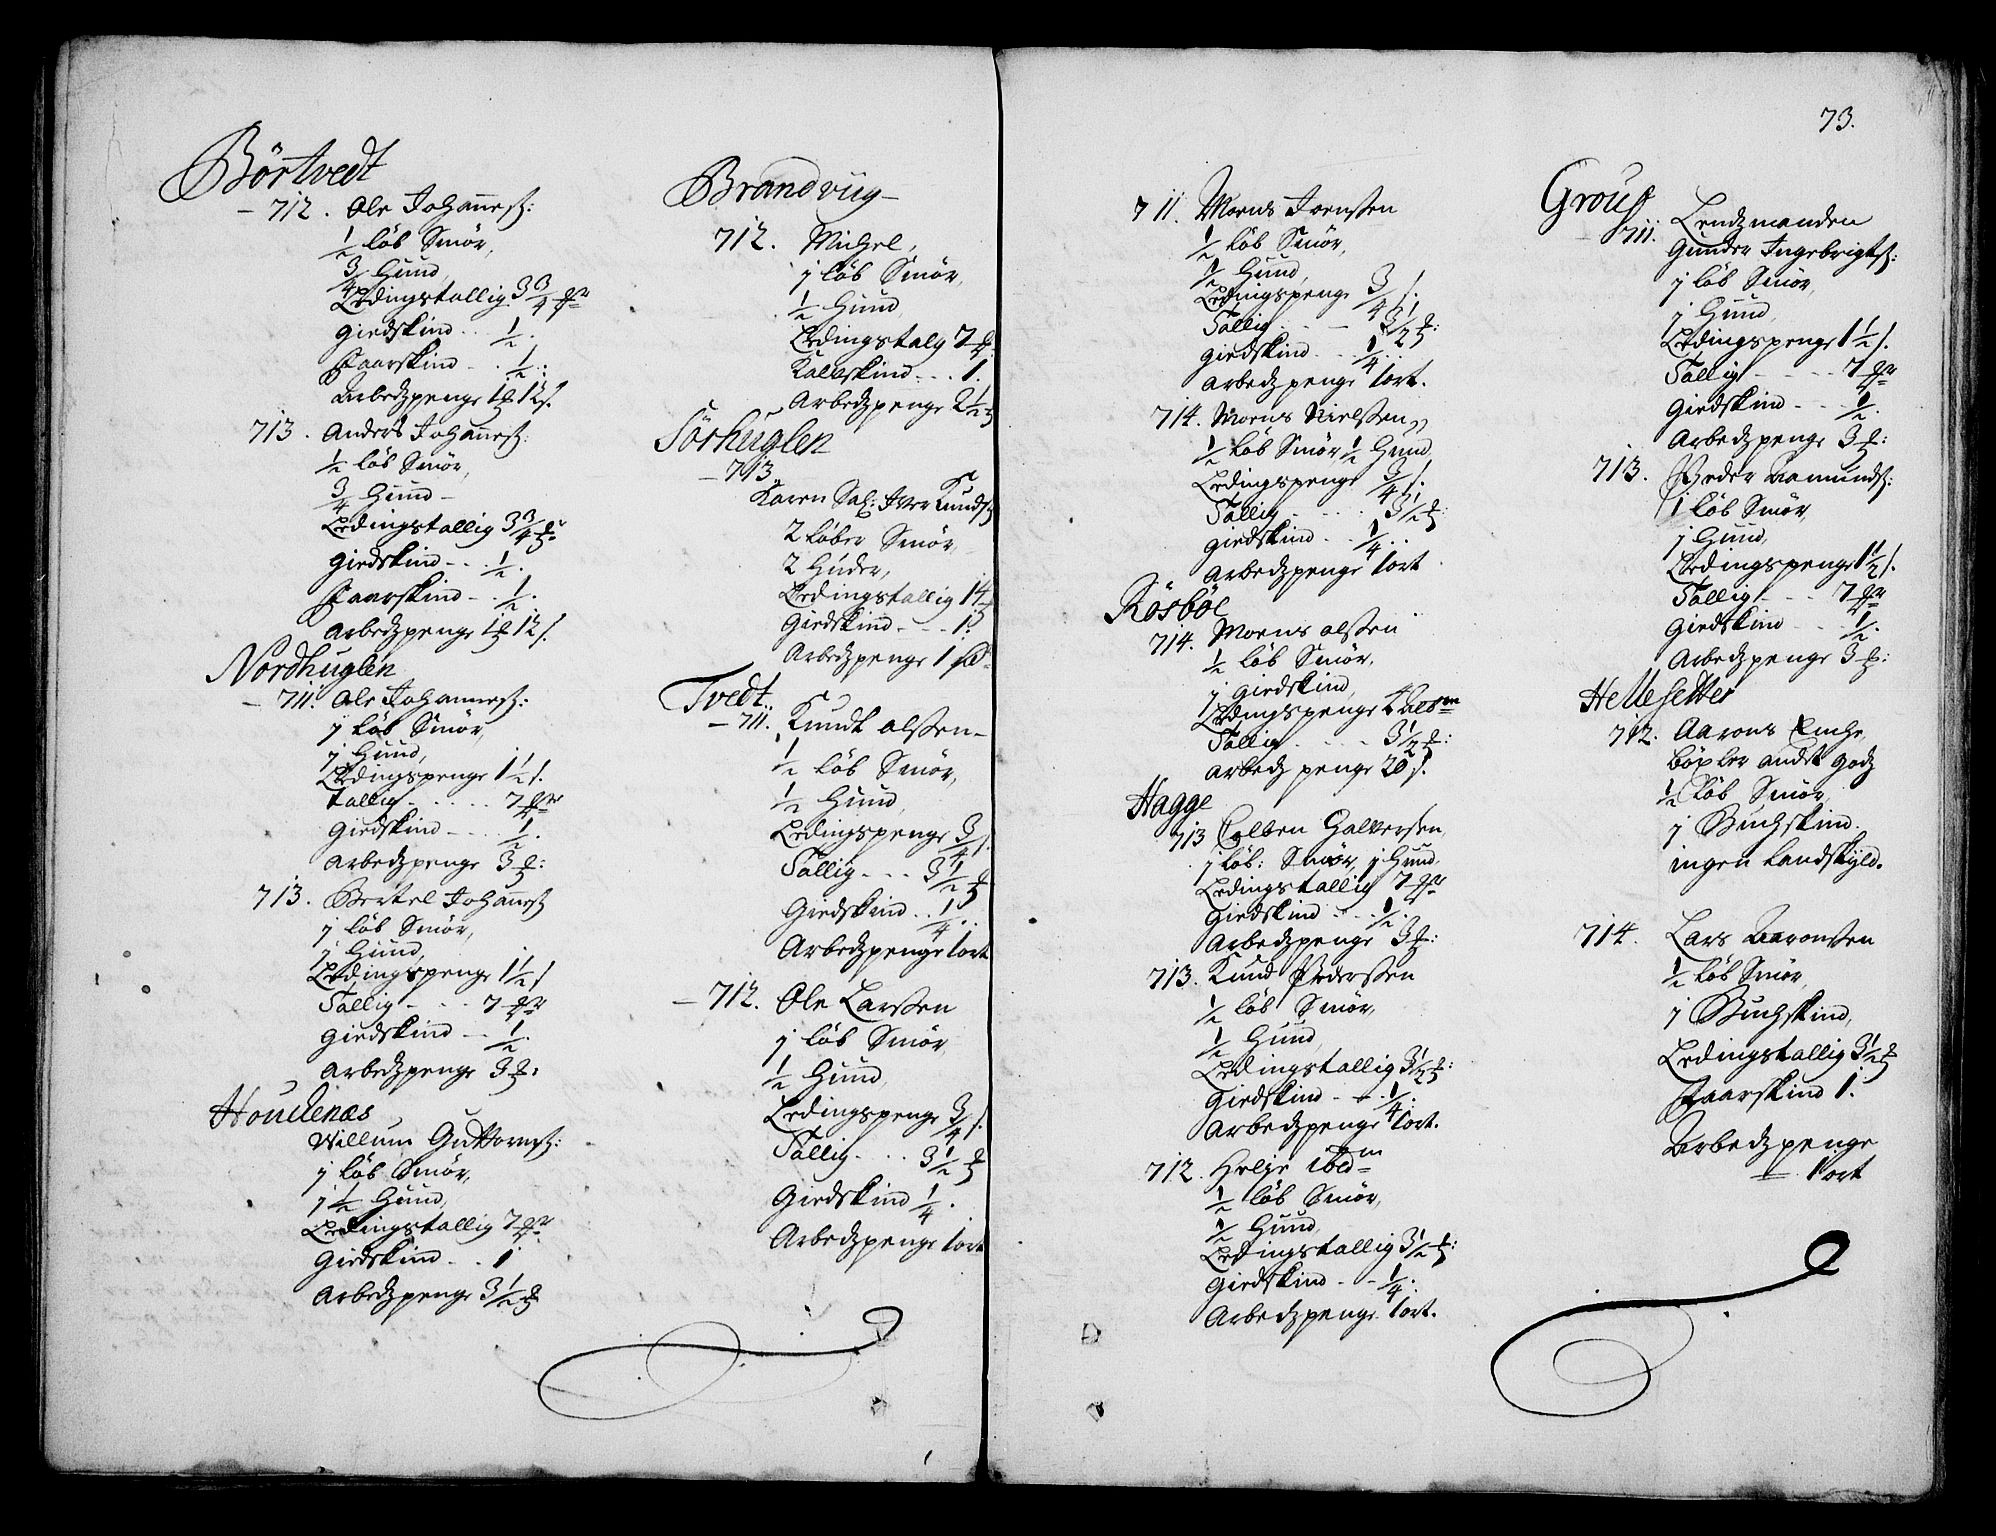 Börtvedt
- 712. Ole Johannesß:
1/2 löb Smör,
3/4 Huud,
Ledingstallig 3 3/4
Giedskind . . 1/2.
Faarskind - . 1/2.
Arbedzpenge 12 s.
713. Anders Johanesß:
1/2 löb Smör,
3/4 Huud -
Ledingstallig 3 3/4
Giedskind - . . 1/2.
Faarskind - . 1/2.
Arbedzpenge 12 s.
Nordhuglen
- 711. Ole Johannesß:
j löb Smör,
j Huud,
Ledingspenge 1 1/2 s.
tallig - . . . . 7
Giedskind - . . . 1/2.
Arbedzpenge 3
713. Bertel Johanesß
j löb Smör,
j Huud,
Ledingspenge 1 1/2 s
Tallig - . . . 7
Giedskind - . . 1/2.
Arbedzpenge 3
Houdenæs
Willum Guttormß:
j löb Smör,
j 1/2 Huud,
Ledingstallig 7
Giedskind . . 1
Arbedzpenge 3 1/2
Brandviig -
712. Michel,
j löb Smör,
1/2 Huud,
Ledingstalg 7
Kalbskind . . . 1.
Arbedzpenge 2 1/2
Sörhuglen
- 713.
Karen Sal: Iver Knudß
2 löber Smör,
2 Huder,
Ledingstallig 14
Giedskind . - - 1.
Arbedzpenge 1
Tvedt.
- 711. Knudt Olssen -
1/2 löb Smör,
1/2 Huud,
Ledingspenge 3/4 s.
Tallig - . . 3 1/2
Giedskind . . 1/4 . .
Arbedzpenge 1 ort
- 712. Ole Larssen
j löb Smör
1/2 Huud,
Ledingspenge 3/4 s.
Tallig - . . . 3 1/2
Giedskind 1/4 .
Arbedzpenge 1 ort
73.
711. Moens Joenssen
1/2 löb Smör,
1/2 Huud,
Ledingspenge 3/4 s.
Tallig . - - 3 1/2
giedskind . . . 1/4 . .
Arbedzpenge 1 ort.
714. Moens Nielssen
1/2 löb Smör, 1/2 Huud,
Ledingspenge 3/4 s.
Tallig - . . . . 3 1/2
giedskind . . . 1/4 . .
Arbedzpenge 1 ort
Rösböe
714. Moens Olssen
1/2 löb Smör,
j giedskind,
Ledingspenge
Tallig . . . - 3 1/2
Arbedz penge 20 s.
Hagge
713 Colben Halversen,
j löb: Smör, j Huud.
Ledingstallig 7
Giedskind . . . 1/2.
Arbedzpenge 3
713. Knud Pederssen
1/2 löb Smör,
1/2 Huud,
Ledingstallig 3 1/2
Giedskind - . . 1/4.
Arbedzpenge 1 ort.
712. Helje ibdm
1/2 löb Smör,
1/2 Huud,
Ledingstallig 3 1/2
Giedskind . - 1/4.
Arbedzpenge 1 ort.
Grouf
711. Lendzmanden
Gunder Ingebrigtß:
j löb Smör,
j Huud,
Ledingspenge 1 1/2 s.
Tallig - - - 7
Giedskind - - 1/2.
Arbedzpenge 3
713. Peder Aamundß:
1 löb Smör,
j Huud,
Ledingspenge 1 1/2 s.
Tallig - - . 7
Giedskind - - 1/2.
Arbedzpenge 3
Hellesetter
712. Aarons Enche,
andet Godz
1/2 löb Smör,
j Buchskind.
ingen Landskyld.
714. Lars Aaronssen
1/2 löb Smör,
j Buchskind,
Ledingstallig 3 1/2
Faarskind 1.
Arbedzpenge
- . 1 ort